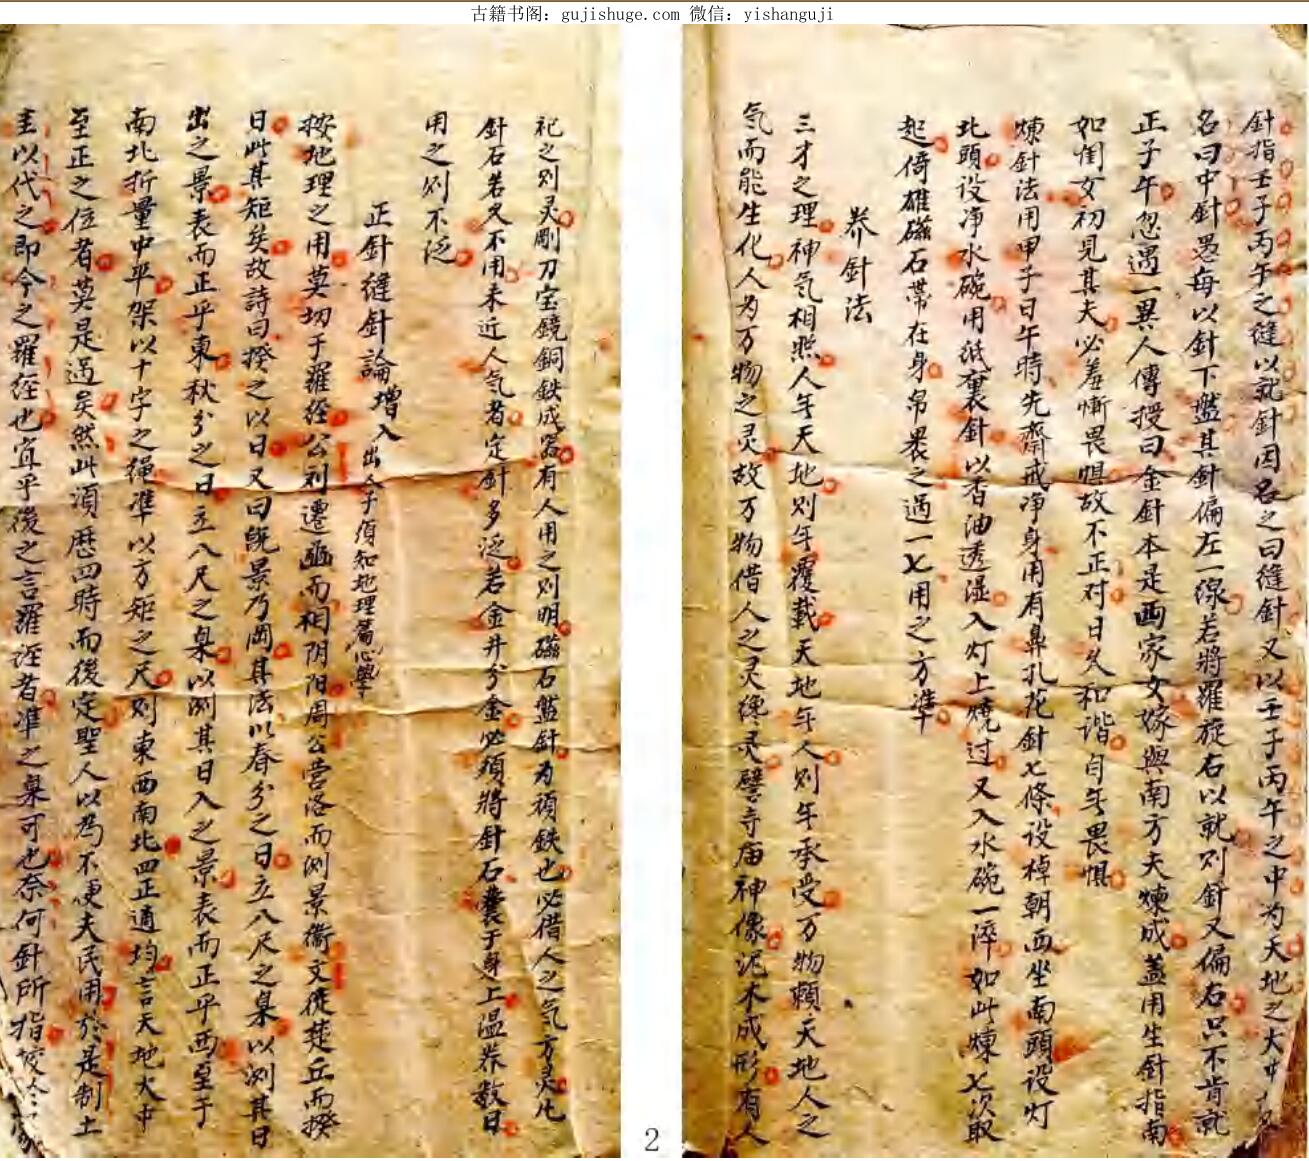 古籍书阁：gujishuge.com 微信：yishanguji
針指壬子丙午之縫以就針因名之曰縫針又以壬子丙午之中为天地之大中
名曰中針愚每以針下盤其針偏左一線若將羅旋右以就则針又偏右只不肯就
正子午忽遇一異人傳授曰金針本是画家女嫁與南方夫煉成蓋用生針指南
如闺女初見其夫必羞慚畏惧故不正对日久和谐自年畏惧
煉針法用甲子日午時先齋戒净身用有鼻孔花針七條设棹朝西坐南頭设灯
北頭设净水碗用纸裹針以香油透湿入灯上燒过又入水碗一淬如此煉七次取
起倚雄磁石帶在身帛畏之過一七用之方準
养針法
三才之理神气相照人年天地则年覆载天地年人则年承受万物頼天地人之
气而能生化人为万物之灵故万物借人之灵緣灵譬寺庙神像泥木成形有人
祀之则灵剛刀宝鏡銅鉄成器有人用之则明磁石盤針为頑鉄也必借人之气方灵凡
針石若久不用未近人气者定針多泛若金井分金必須將針石囊于身上温养数日
用之则不泛
正針縫針論增入出人子須知地理篇心學
按地理之用莫切于羅经公刘遷豳而相阴阳周公营洛而测景衞文徙楚丘而揆
日此其矩矣故詩曰揆之以日又曰旣景乃岡其法以春分之日立八尺之臬以测其日
出之景表而正乎東秋分之日立八尺之臬以测其日入之景表而正乎西至于
南北折量中平架以十字之绳準以方矩之尺则東西南北四正適均言天地大中
至正之位者莫是過矣然此須歷四時而後定聖人以為不便夫民用於是制土
圭以代之即今之羅经也宜乎後之言羅经者準之臬可也奈何針所指
2